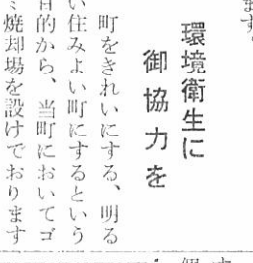 ます。
環境衛生に
御協力を
町をきれいにする、明る
い住みよい町にするという
目的から、当町においてゴ
ミ焼却場を設けております